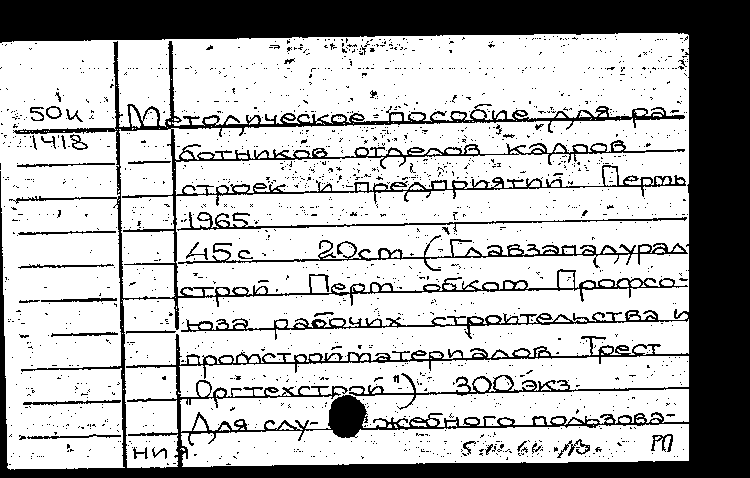 50к Методическое пособие для ра-
1418 ботников отделов кадров
строек и предприятий. Пермь
1965.
45с. 20cm. (Главзападурал
строй. Перм. обком. Профсо-
юза рабочих строительства и
промстройматериалов. Трест
„Оргтехстрой"). 300 экз.
Для слу- жебного пользова-
ния. РП